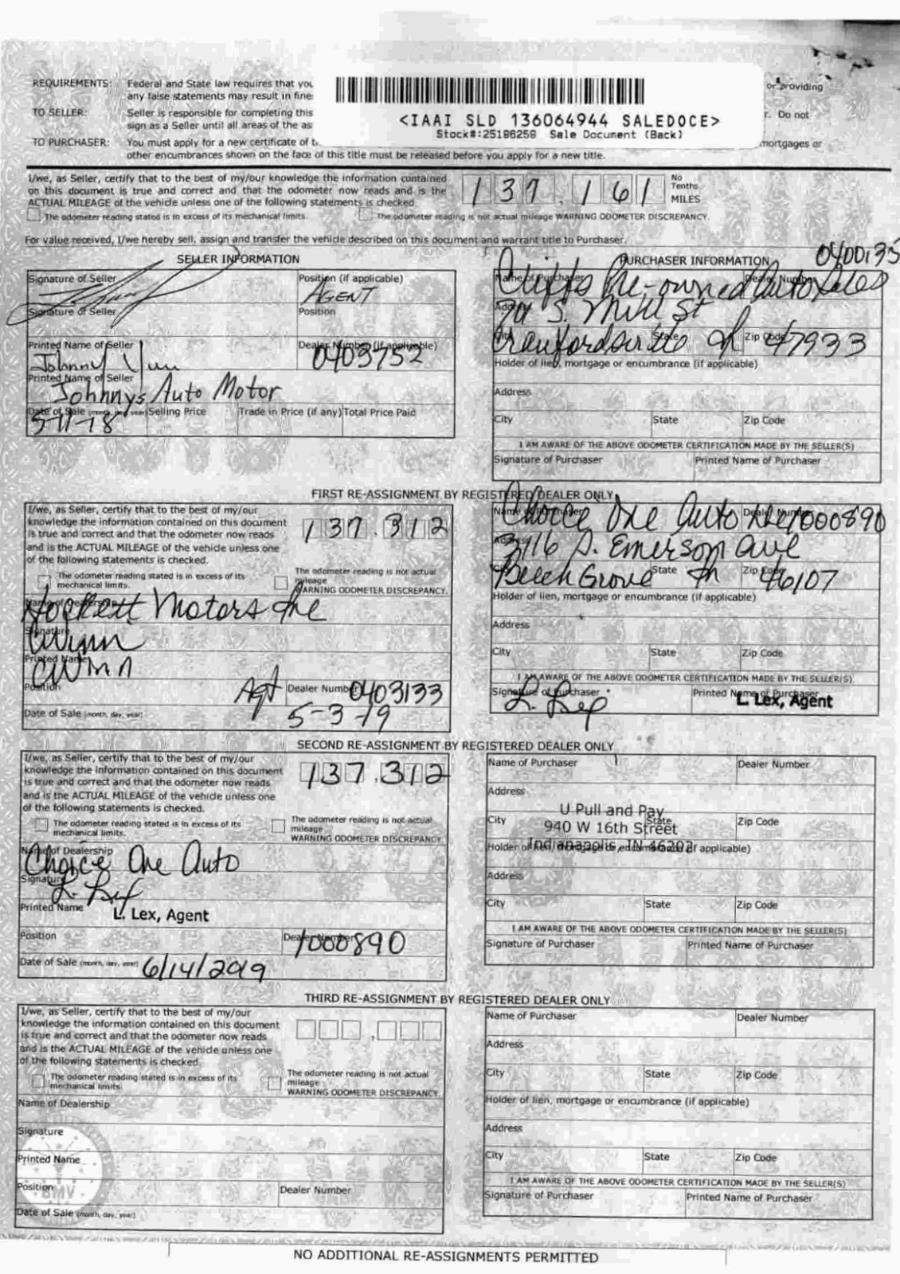 REQUIREMENTS: Federal and State law requires that you
any false statements may result in fine
or providing
TO SELLER: Seller is responsible for completing this
sign as a Seller until all areas of the as
r. Do not
TO PURCHASER: You must apply for a new certificate of t
mortgages or
other encumbrances shown on the face of this title must be released before you apply for a new title.
<IAAI SLD 136064944 SALEDOCE>
Stock#:25196259 Sale Document (Back)
I/we, as Seller, certify that to the best of my/our knowledge the information contained
on this document is true and correct and that the odometer now reads and is the
ACTUAL MILEAGE of the vehicle unless one of the following statements is checked.
137,161
No Tenths MILES
The odometer reading stated is in excess of its mechanical limits.
The odometer reading is not actual mileage WARNING ODOMETER DISCREPANCY.
For value received, I/we hereby sell, assign and transfer the vehicle described on this document and warrant title to Purchaser.
SELLER INFORMATION
Signature of Seller
Position (if applicable)
AGENT
Signature of Seller
Position
Printed Name of Seller
Dealer Number (if applicable)
Johnny
0403752
Printed Name of Seller
Johnnys Auto Motor
Date of Sale (month, day, year)
Selling Price
Trade in Price (if any)
Total Price Paid
PURCHASER INFORMATION
0400135
Name of Purchaser
Dealer Number
Pre-owned Auto Sales
S. Mill St
State
Zip Code
Crawfordsville 47933
Holder of lien, mortgage or encumbrance (if applicable)
Address
City
State
Zip Code
I AM AWARE OF THE ABOVE ODOMETER CERTIFICATION MADE BY THE SELLER(S)
Signature of Purchaser
Printed Name of Purchaser
FIRST RE-ASSIGNMENT BY REGISTERED DEALER ONLY
I/we, as Seller, certify that to the best of my/our
knowledge the information contained on this document
is true and correct and that the odometer now reads
and is the ACTUAL MILEAGE of the vehicle unless one
of the following statements is checked.
137,312
The odometer reading stated is in excess of its
mechanical limits.
The odometer reading is not actual
mileage
WARNING ODOMETER DISCREPANCY.
Motors Inc
Signature
Printed Name
Position
Agt
Dealer Number
0403133
Date of Sale (month, day, year)
5-3-19
Choice One Auto 1000890
3716 S. Emerson Ave
State
Zip Code
Beech Grove In 46107
Holder of lien, mortgage or encumbrance (if applicable)
Address
City
State
Zip Code
I AM AWARE OF THE ABOVE ODOMETER CERTIFICATION MADE BY THE SELLER(S)
Signature of Purchaser
L. Lex
Printed Name of Purchaser
L. Lex, Agent
SECOND RE-ASSIGNMENT BY REGISTERED DEALER ONLY
I/we, as Seller, certify that to the best of my/our
knowledge the information contained on this document
is true and correct and that the odometer now reads
and is the ACTUAL MILEAGE of the vehicle unless one
of the following statements is checked.
137,312
The odometer reading stated is in excess of its
mechanical limits.
The odometer reading is not actual
mileage
WARNING ODOMETER DISCREPANCY.
Name of Dealership
Choice One Auto
Signature
L. Lex
Printed Name
L. Lex, Agent
Position
Dealer Number
1000890
Date of Sale (month, day, year)
6/14/2019
Name of Purchaser
Dealer Number
Address
U Pull and Pay
City
State
Zip Code
940 W 16th Street
Holder of lien, mortgage or encumbrance (if applicable)
Indianapolis, IN 46202
Address
City
State
Zip Code
I AM AWARE OF THE ABOVE ODOMETER CERTIFICATION MADE BY THE SELLER(S)
Signature of Purchaser
Printed Name of Purchaser
THIRD RE-ASSIGNMENT BY REGISTERED DEALER ONLY
I/we, as Seller, certify that to the best of my/our
knowledge the information contained on this document
is true and correct and that the odometer now reads
and is the ACTUAL MILEAGE of the vehicle unless one
of the following statements is checked.
The odometer reading stated is in excess of its
mechanical limits.
The odometer reading is not actual
mileage
WARNING ODOMETER DISCREPANCY.
Name of Dealership
Signature
Printed Name
Position
Dealer Number
BMV
Date of Sale (month, day, year)
Name of Purchaser
Dealer Number
Address
City
State
Zip Code
Holder of lien, mortgage or encumbrance (if applicable)
Address
City
State
Zip Code
I AM AWARE OF THE ABOVE ODOMETER CERTIFICATION MADE BY THE SELLER(S)
Signature of Purchaser
Printed Name of Purchaser
NO ADDITIONAL RE-ASSIGNMENTS PERMITTED